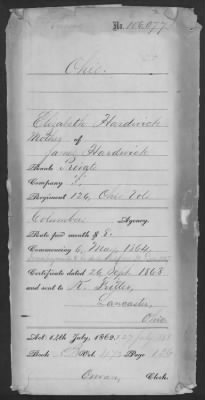 No. 106,077
Ohio.
Elizabeth Hardwick
Mother of
James Hardwick
Rank Private
Company F,
Regiment 126, Ohio Vols
Columbus Agency.
Rate per month $ 8.
Commencing 6, May 1864.
Certificate dated 26 Sept. 1868.
and sent to
Lancaster,
Ohio
Act 14th July, 1862.
Book Vol. Page
Clerk.